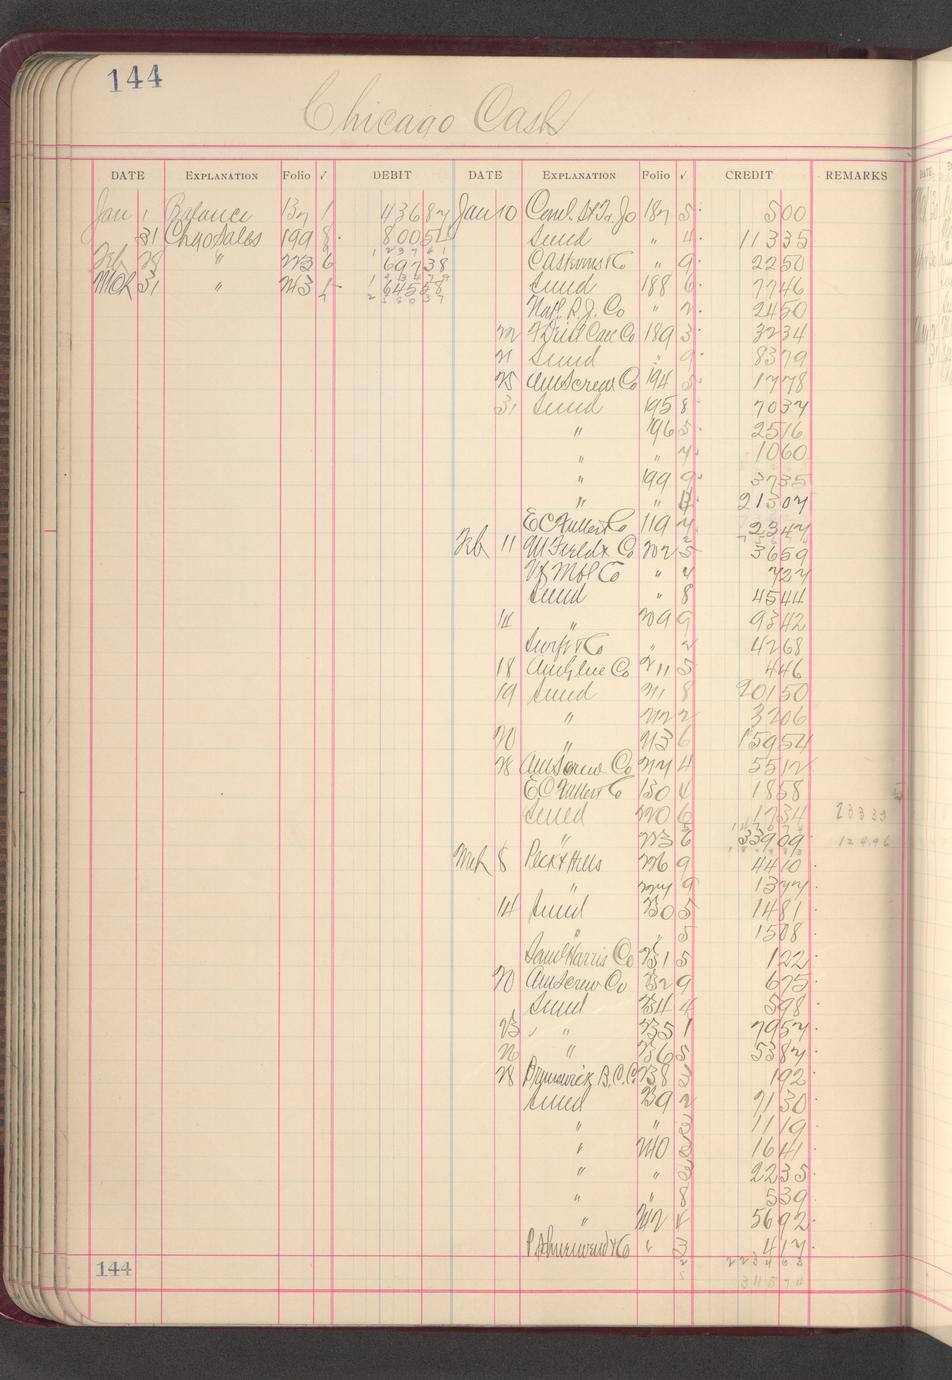 144
Chicago Cash
DATE EXPLANATION Folio ✓ DEBIT DATE EXPLANATION Folio ✓ CREDIT REMARKS
Jan 1 Balance 137 1 436 87 Jan 10 187 5 5 00
31 Chgo Sales 199 8 800 54 Sund " 4 113 35
Feb 28 " 223 6 697 38 " 9 22 50
Mch 31 " 243 1 645 58 Sund 188 6 77 46
Natl. R.J. Co " 2 24 50
22 Case Co 189 3 32 34
21 Sund " 9 83 79
25 Am Screw Co 194 5 17 78
31 Sund 195 8 70 32
" 196 5 25 16
" " 4 10 60
" 199 9 37 35
" " 4 213 07
E C Fuller Co 119 7 23 47
Feb 11 M Field & Co 202 5 36 59
Mfg Co " 4 7 27
Sund " 8 45 44
14 " 209 9 93 42
Swift & Co " 2 42 68
18 Am Glue Co 211 5 4 46
19 Sund 211 8 201 50
" 212 2 32 06
20 " 213 6 159 54
28 Am Screw Co 217 4 55 12
E C Fuller & Co 130 4 18 58
Sund 220 6 17 34 23333
" 223 6 339 09 12496
Mch 8 Peck & Hills 226 9 44 10
" 227 9 13 77
14 Sund 230 5 14 81
" " 5 15 08
Saml Harris Co 231 5 1 22
20 Am Screw Co 232 9 6 75
Sund 234 4 5 98
23 " 235 1 79 57
26 " 236 5 53 87
28 Brunswick B.C.Co 238 3 1 92
Sund 239 2 71 30
" 2 11 19
" 240 2 16 41
" " 2 22 35
" " 8 5 39
" 242 4 56 92
" 3 4 17
223463
311574
144